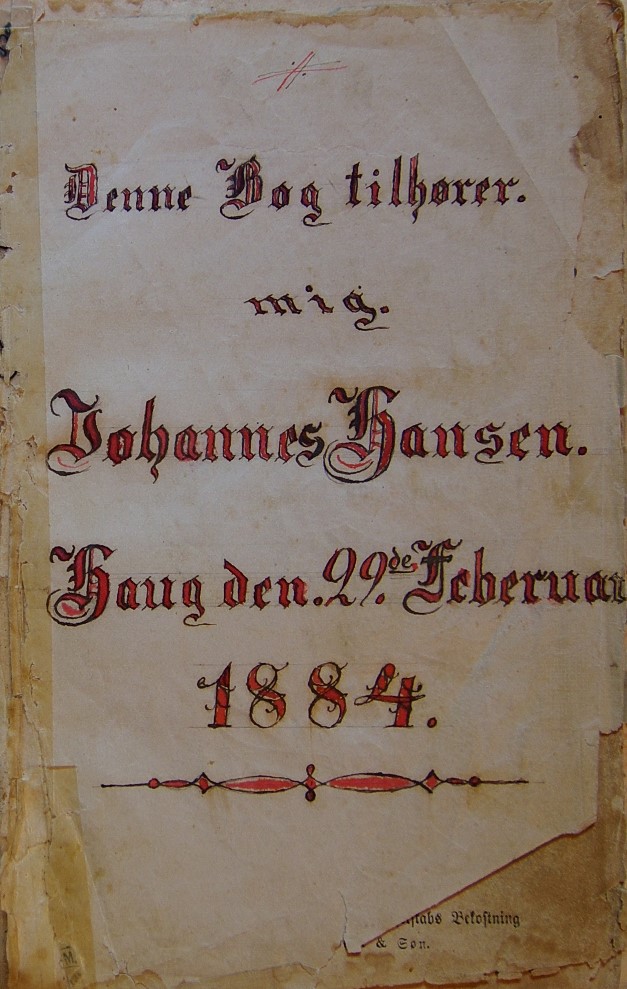 Denne Bog tilhører.
mig.
Johannes Hansen.
Haug den. 22.de Feberuar
1884.
skabs Bekostning
& Søn.